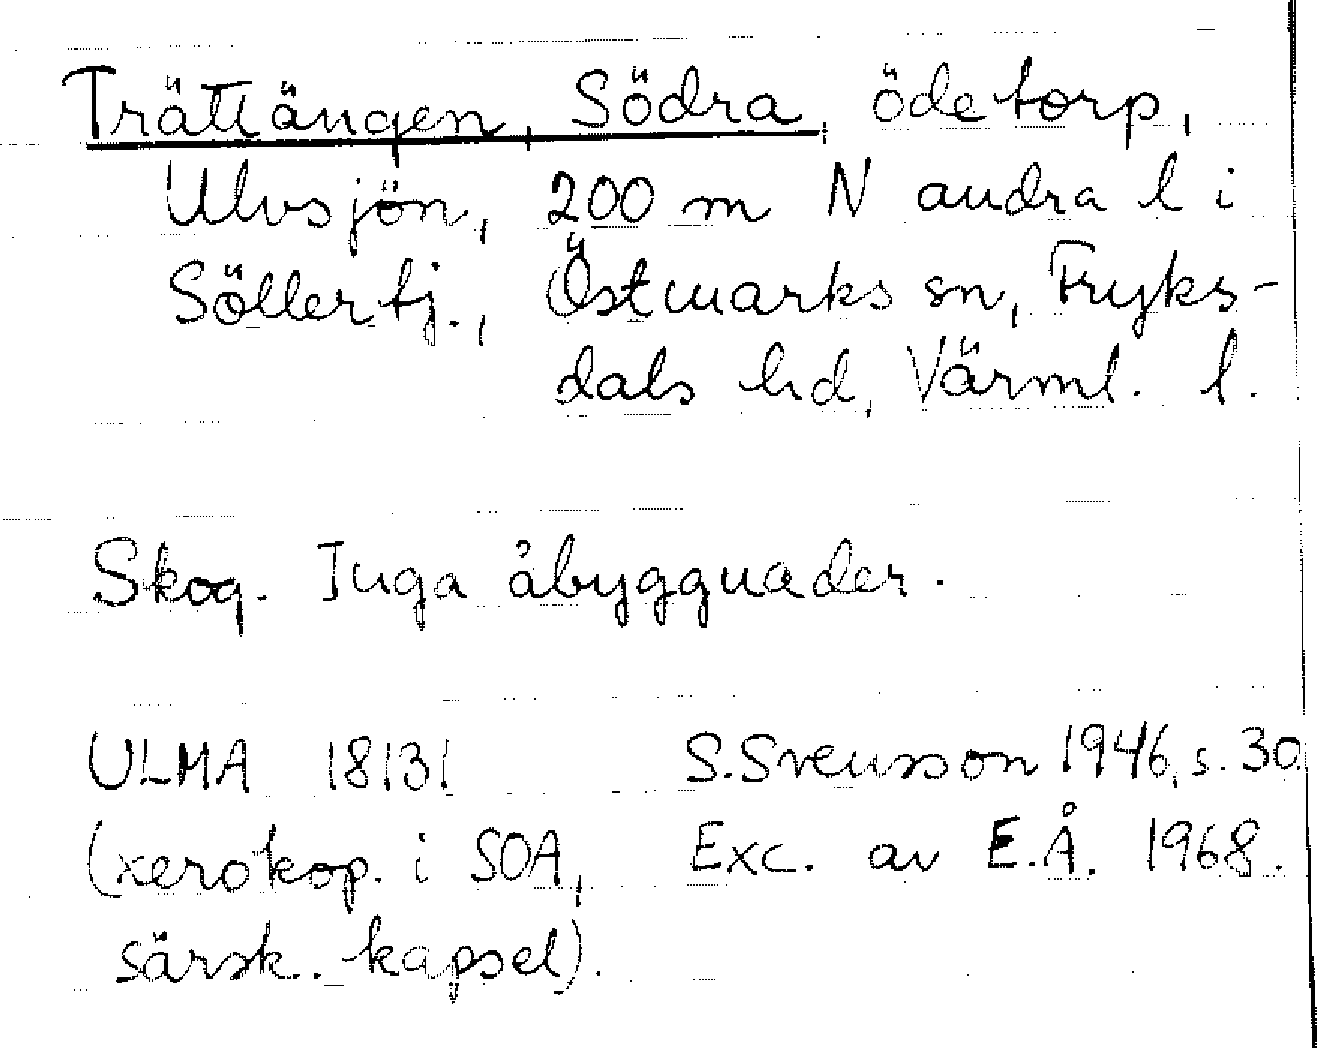 Trättängen, Södra, ödetorp,
Ulvsjön, 200 m N andra l i
Söllertj., Östmarks sn, Fryks-
dals hd, Värml. l.
Skog. Inga åbyggnader.
ULMA 18131 S. Svensson 1946, s. 30.
(xerokop. i SOA, Exc. av E.Å. 1968.
särsk. kapsel).